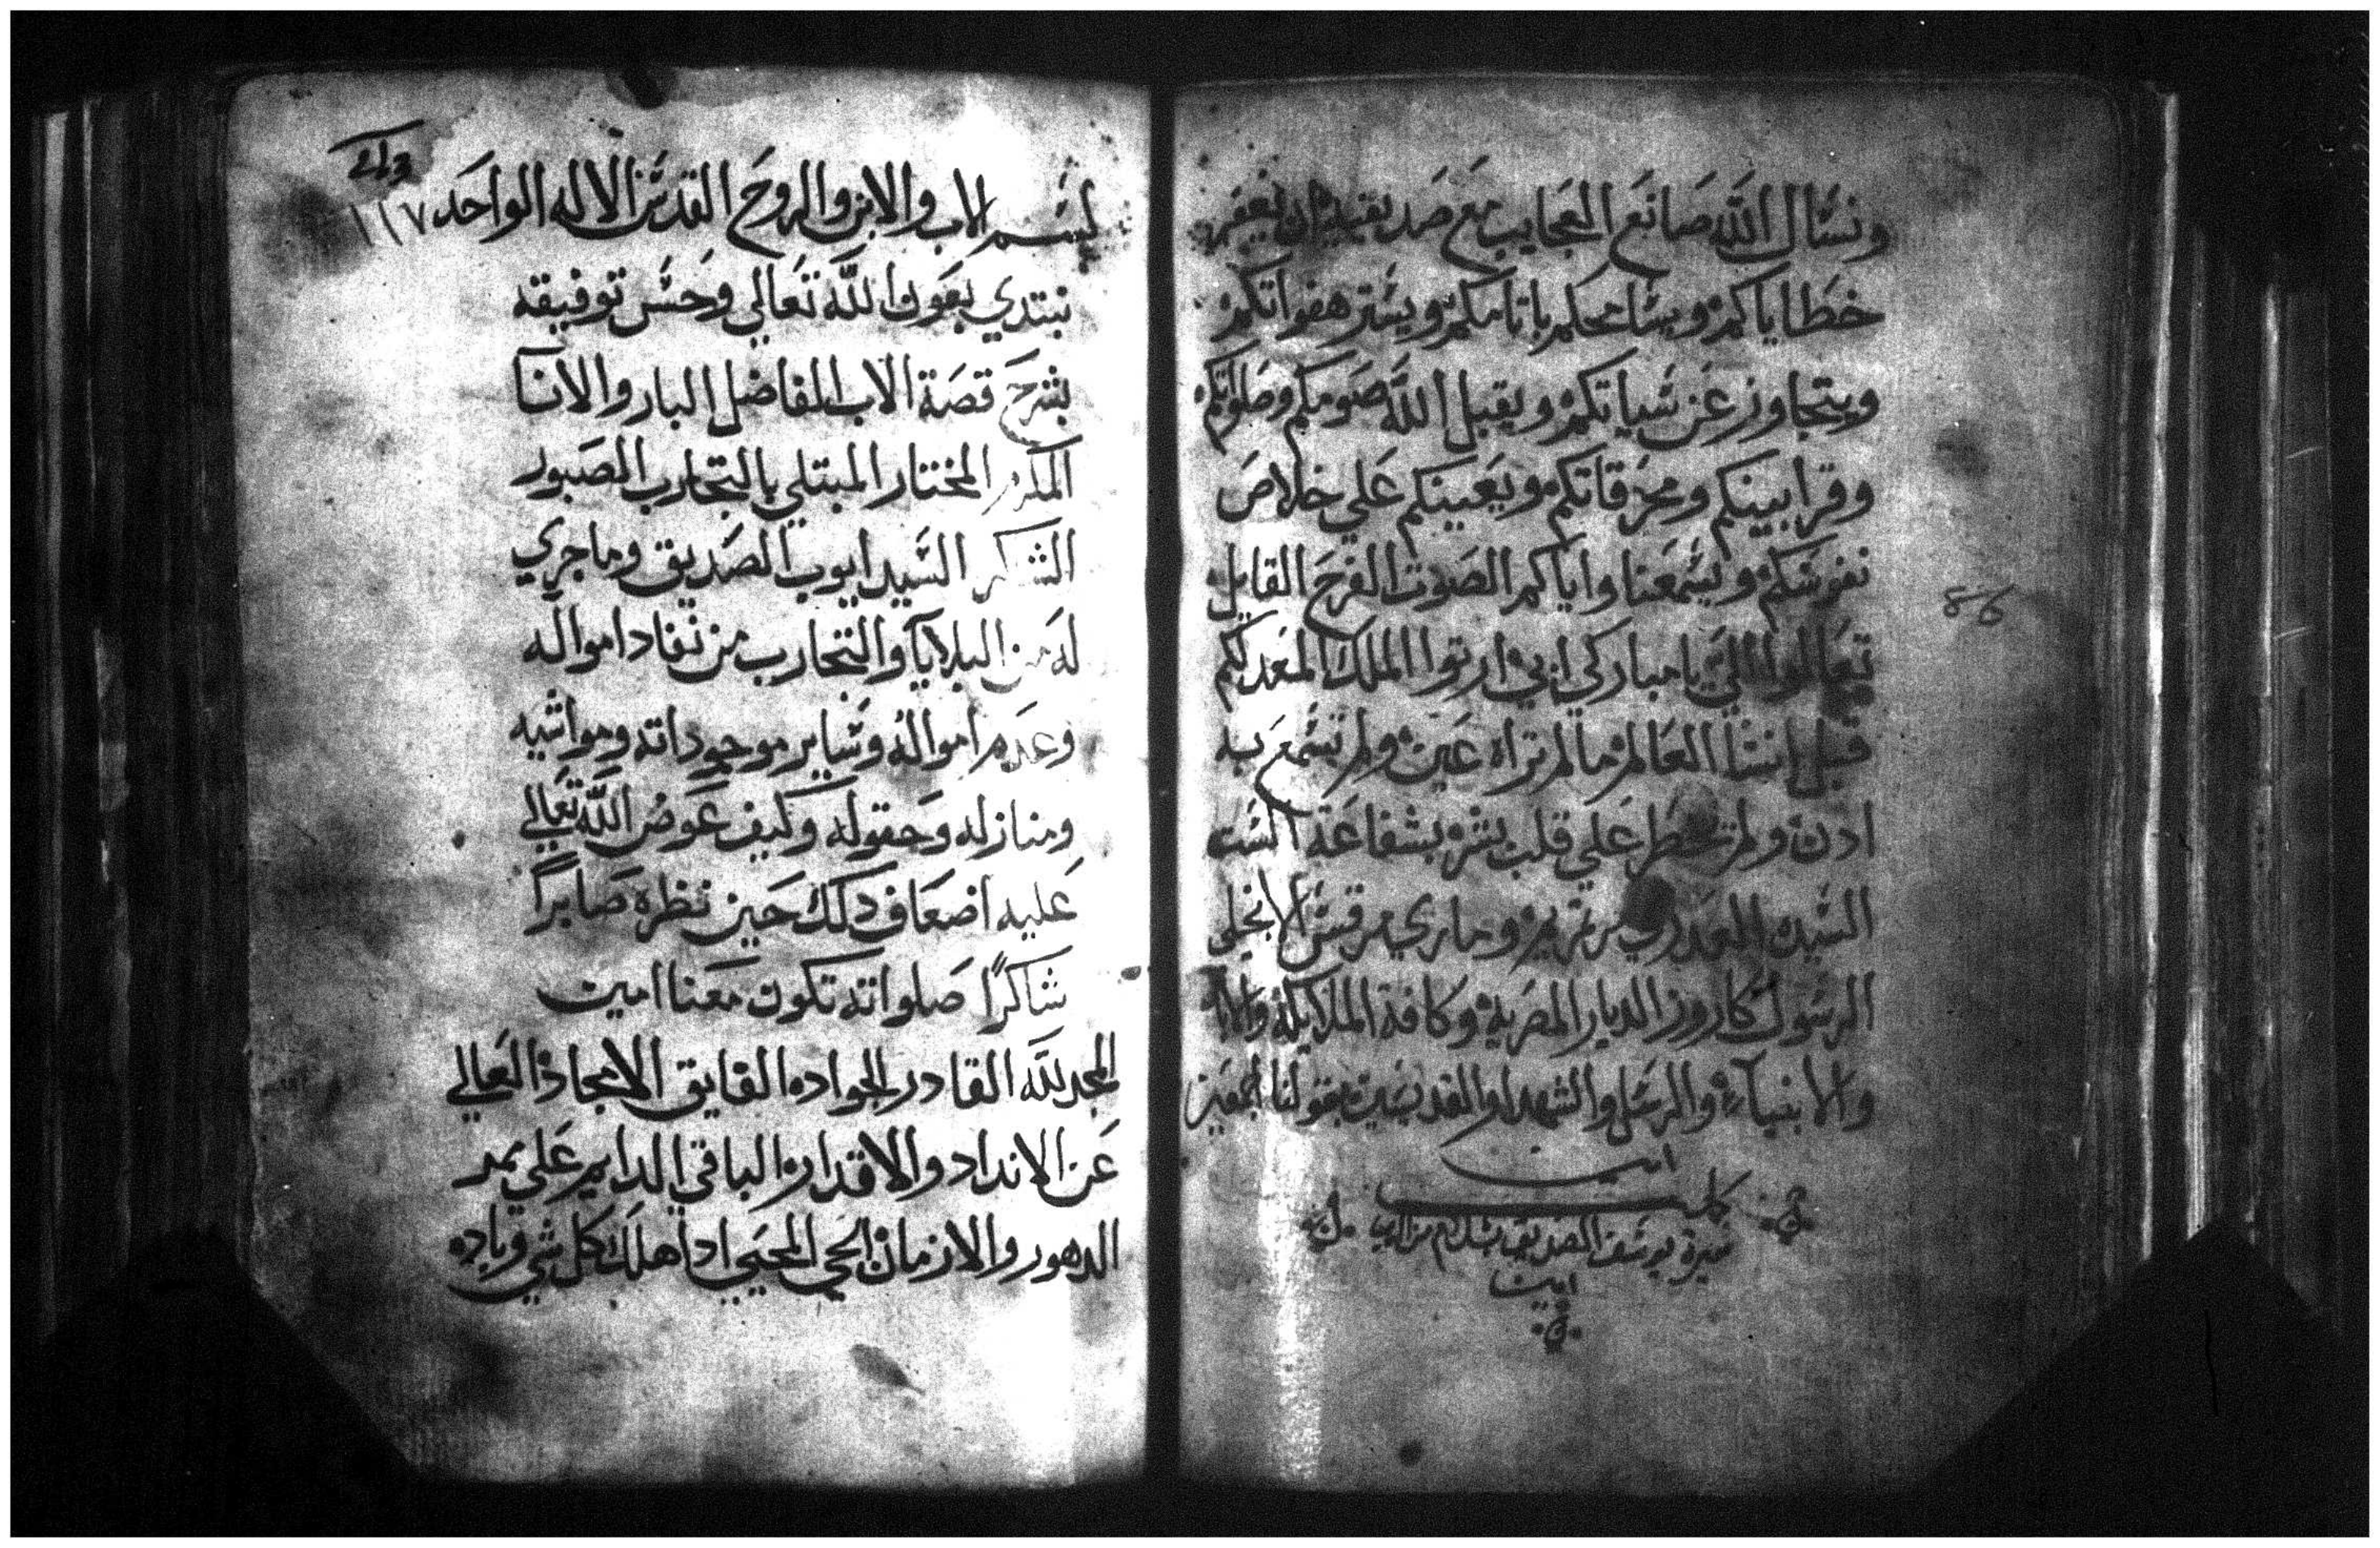 ونسال الله صانع العجايب مع صديقيه ان يغفر
خطاياكم ويسامحكم باثامكم ويستر هفواتكم
ويتجاوز عن سياتكم ويقبل الله صومكم وصلواتكم
وقرابينكم ومحرقاتكم ويعينكم علي خلاص
نفوسكم ويسمعنا واياكم الصوت الفرح القايل
تعالوا الي يا مباركي ابي ارتوا الملك المعد لكم
قبل انشا العالم ما لم تراه عين ولم تسمع به
ادن ولم تخطر علي قلب بشر بشفاعة الست
السيده العدري مرتمريم وماري مرقس الانجيلي
الرسول كاروز الديار المصرية وكافة الملايكة والابا
والانبيآء والرسل والشهدا والقديسين بقولنا اجمعين
امين
كملت
سيرة يوسف الصديق بسلام من الرب
امين
بسم الاب والابن والروح القدس الاله الواحد ١١٧
نبتدي بعون الله تعالي وحسن توفيقه
بشرح قصة الاب الفاضل البار والانا
المكرم المختار المبتلي بالتجارب الصبور
الشكر السيد ايوب الصديق وما جري
له من البلايا والتجارب من نفاد امواله
وعدم امواله وساير موجوداته ومواشيه
ومنازله وحقوله وكيف عوض الله تعالي
عليه اضعاف دلك حين نظره صابراً
شاكراً صلواته تكون معنا امين
المجد لله القادر الجواد الفايق الامجاد العالي
عن الانداد والاقدار الباقي الدايم علي ممر
الدهور والازمان الحي المحيي ادا هلك كل شي وباد